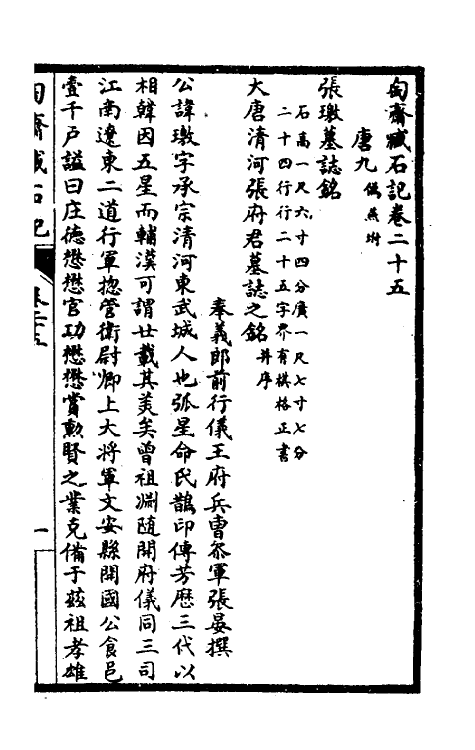 匋齋臧石記卷二十五
唐九 僞燕坿
張璬墓誌銘
石高一尺六寸四分廣一尺七寸七分
二十四行行二十五字界有棋格正書
大唐清河張府君墓誌之銘 并序
奉義郎前行儀王府兵曹叅軍張晏撰
公諱璬字承宗清河東武城人也弧星命氏鵲印傳芳歷三代以
相韓因五星而輔漢可謂世載其美矣曾祖淵隨開府儀同三司
江南遼東二道行軍揔管衛尉卿上大將軍文安縣開國公食邑
壹千户謚曰庄德懋懋官功懋懋賞勳賢之業克備于兹祖孝雄
匋齋臧石記
卷二十五
一